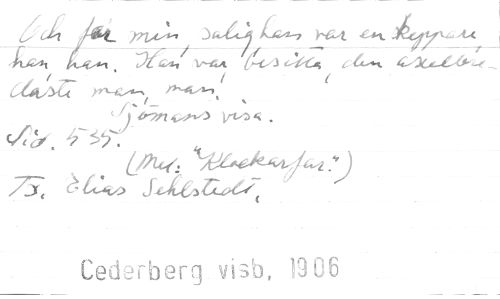 Och far min, salighans var en skeppare
han, han. Han var, besitta, den axelbre-
daste man, man.
Sjömans visa.
Sid. 535.
(Mel: "Klockarfar.")
Tx. Elias Sehlstedt.
Cederberg visb, 1906